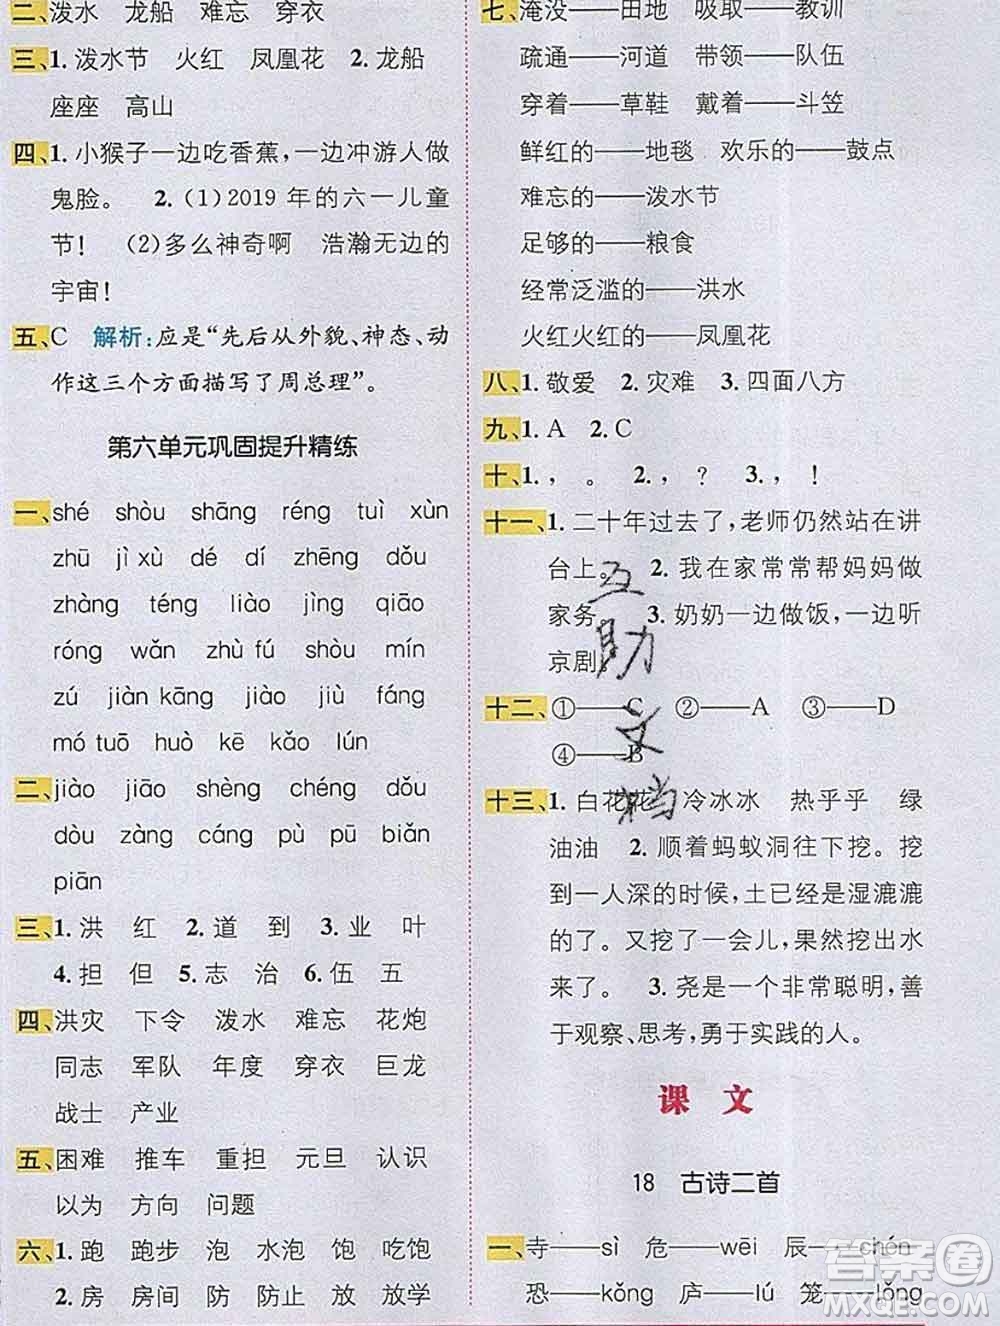 二、泼水　龙船　难忘　穿衣
三、1. 泼水节　火红　凤凰花　2. 龙船
座座　高山
四、1. 小猴子一边吃香蕉，一边冲游人做
鬼脸。　2. (1)2019 年的六一儿童
节！　(2)多么神奇啊　浩瀚无边的
宇宙！
五、C　解析：应是“先后从外貌、神态、动
作这三个方面描写了周总理”。
第六单元巩固提升精练
一、shé　shòu　shāng　réng　tuì　xùn
zhū　jì xù　dé　dí　zhēng　dǒu
zhàng　téng　liào　jìng　qiāo
róng　wǎn　zhù fú　shòu　mín
zú　jiàn kāng　jiào　jiù　fáng
mó tuō　huò　kē　kǎo　lún
二、jiào　jiāo　shèng　chéng　dǒu
dòu　zàng　cáng　pù　pū　biǎn
piān
三、1. 洪　红　2. 道　到　3. 业　叶
4. 担　但　5. 志　治　6. 伍　五
四、洪灾　下令　泼水　难忘　花炮
同志　军队　年度　穿衣　巨龙
战士　产业
五、困难　推车　重担　元旦　认识
以为　方向　问题
六、1. 跑　跑步　泡　水泡　饱　吃饱
2. 房　房间　防　防止　放　放学
七、淹没——田地　吸取——教训
疏通——河道　带领——队伍
穿着——草鞋　戴着——斗笠
鲜红的——地毯　欢乐的——鼓点
难忘的——泼水节
足够的——粮食
经常泛滥的——洪水
火红火红的——凤凰花
八、1. 敬爱　2. 灾难　3. 四面八方
九、1. A　2. C
十、1. ，　。　2. ，　？　3. ，　！
十一、1. 二十年过去了，老师仍然站在讲
台上。　2. 我在家常常帮妈妈做
家务。　3. 奶奶一边做饭，一边听
京剧。
十二、①——C　②——A　③——D
④——B
十三、1. 白花花　冷冰冰　热乎乎　绿
油油　2. 顺着蚂蚁洞往下挖。挖
到一人深的时候，土已经是湿漉漉
的了。又挖了一会儿，果然挖出水
来了。　3. 尧是一个非常聪明，善
于观察、思考，勇于实践的人。
互
助
文
档
课　文
18　古诗二首
一、寺——sì　危——wēi　辰——chén
恐——kǒng　庐——lú　笼——lǒng
答案圈
MXQE.COM